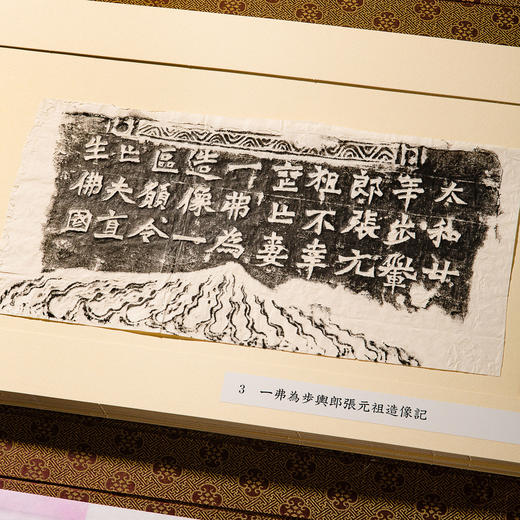 太和廿
年步轝
郎張元
祖不幸
喪亡妻
一弗為
造像一
區願令
亡夫直
生佛國
3 一弗為步輿郎張元祖造像記